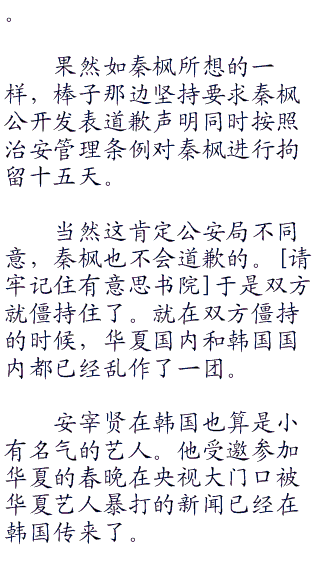 。
果然如秦枫所想的一
样，棒子那边坚持要求秦枫
公开发表道歉声明同时按照
治安管理条例对秦枫进行拘
留十五天。
当然这肯定公安局不同
意，秦枫也不会道歉的。[请
牢记住有意思书院]于是双方
就僵持住了。就在双方僵持
的时候，华夏国内和韩国国
内都已经乱作了一团。
安宰贤在韩国也算是小
有名气的艺人。他受邀参加
华夏的春晚在央视大门口被
华夏艺人暴打的新闻已经在
韩国传来了。